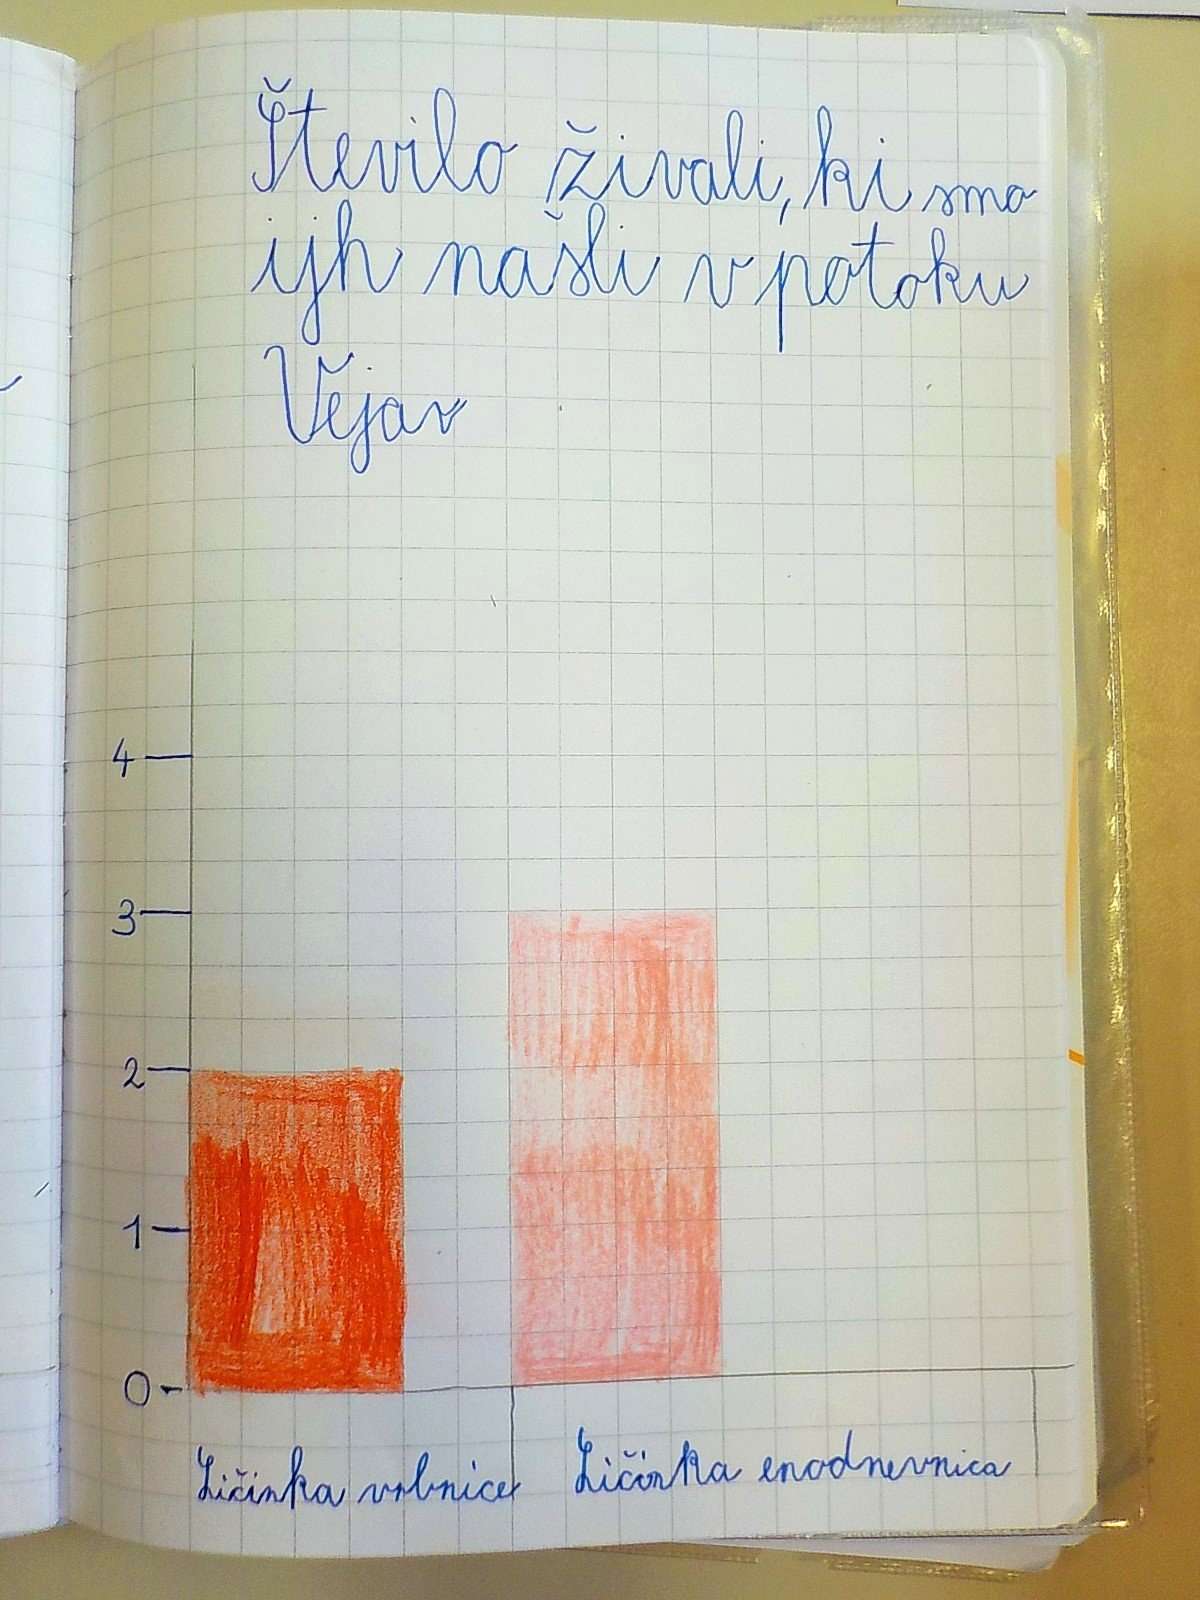 Število živali, ki smo
ijh našli v potoku
Vejar
4
3
2
1
0
Ličinka vrbnice
Ličinka enodnevnica